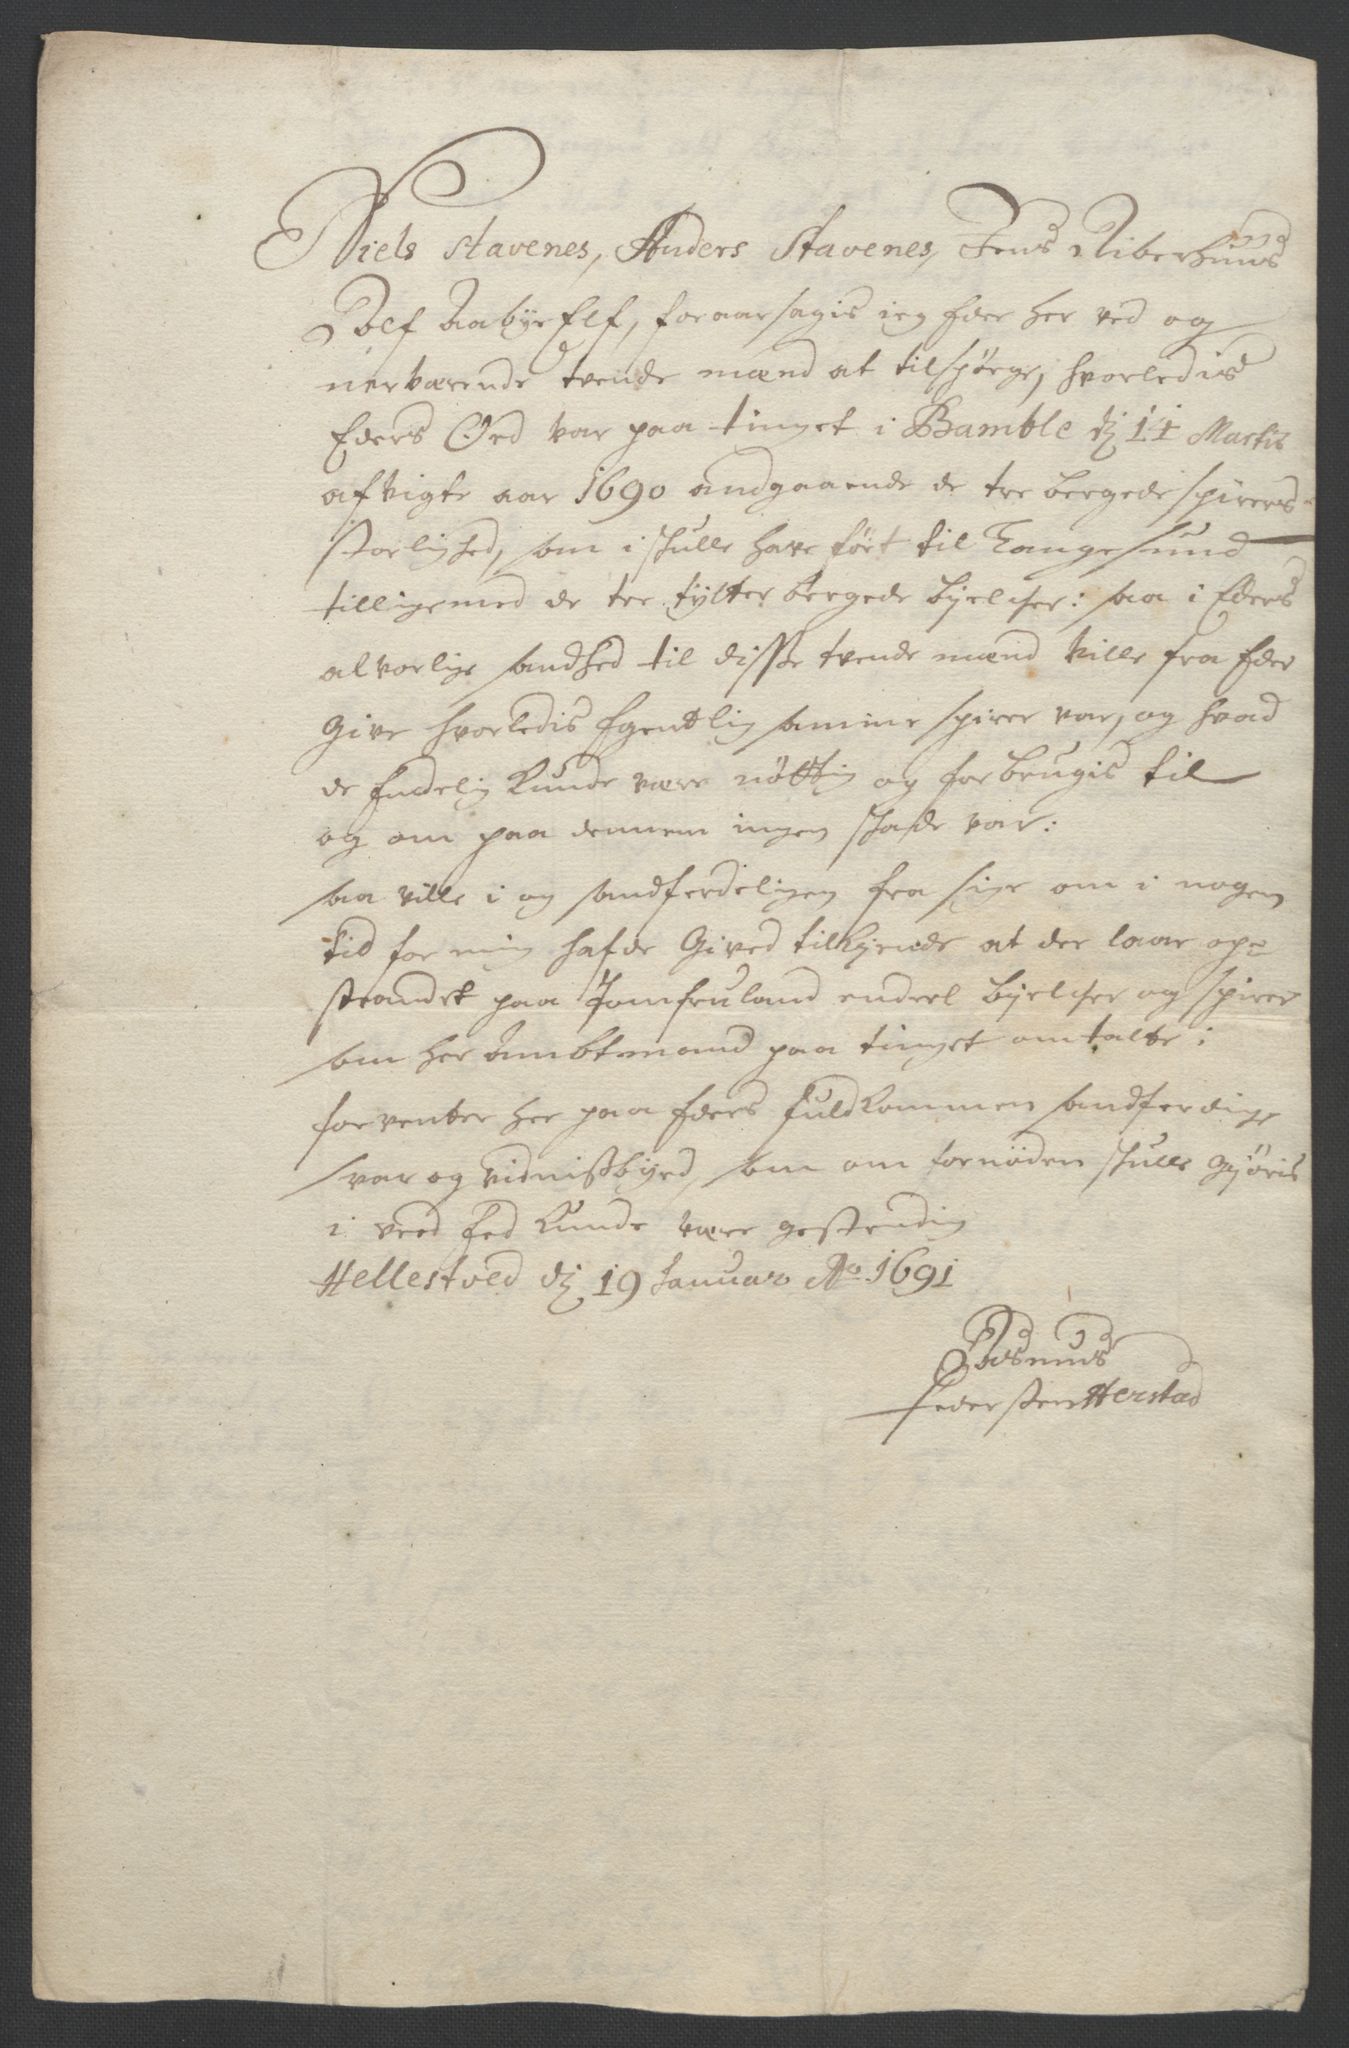 Niels Stavenes, Anders Stavenes, Jens Riberhuus
Rolf Aabyr Elf, foraarsagis ieg Eder her ved og
nerværende tvende mænd at tilspørge, hvorledis
Eders Ord var paa tinget i Bamble dj 11 Martis
afvigte aar 1690 andgaaende de tre bergede spirers
storlighed, som i skulle have ført til Langesund
tilligemed de tre tylter bergede bjelcher: saa i Eders
alvorlige sandhed til disse tvende mænd ville fra Eder
Give hvorledis Egentlig samme spirer var, og hvad
de Endelig kunde være nøttig og forbrugis til
og om paa dennem ingen skade var:
saa ville i og sandferdeligen fra sige om i nogen
tid for mig hafde Gived tilkjende at der laae op=
strandet paa Jomfruland endeel bjelcher og spirer
som her Ambtmand paa tinget omtalte:
forventer her paa Eders fuldkommen sandferdige
svar og vidnisbyrd, som om fornøden skulle Gjøris
i veed Eed kunde være gestendig
Hellestved dj 19 Januar Ao 1691
Rasmus
Pedersen Herstad